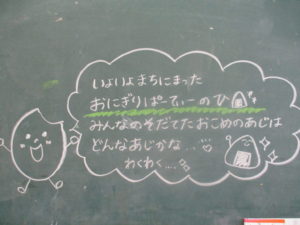 いよいよまちにまった
おにぎりぱーてぃーのひ
みんなのそだてたおこめのあじは
どんなあじかな...
わくわく....